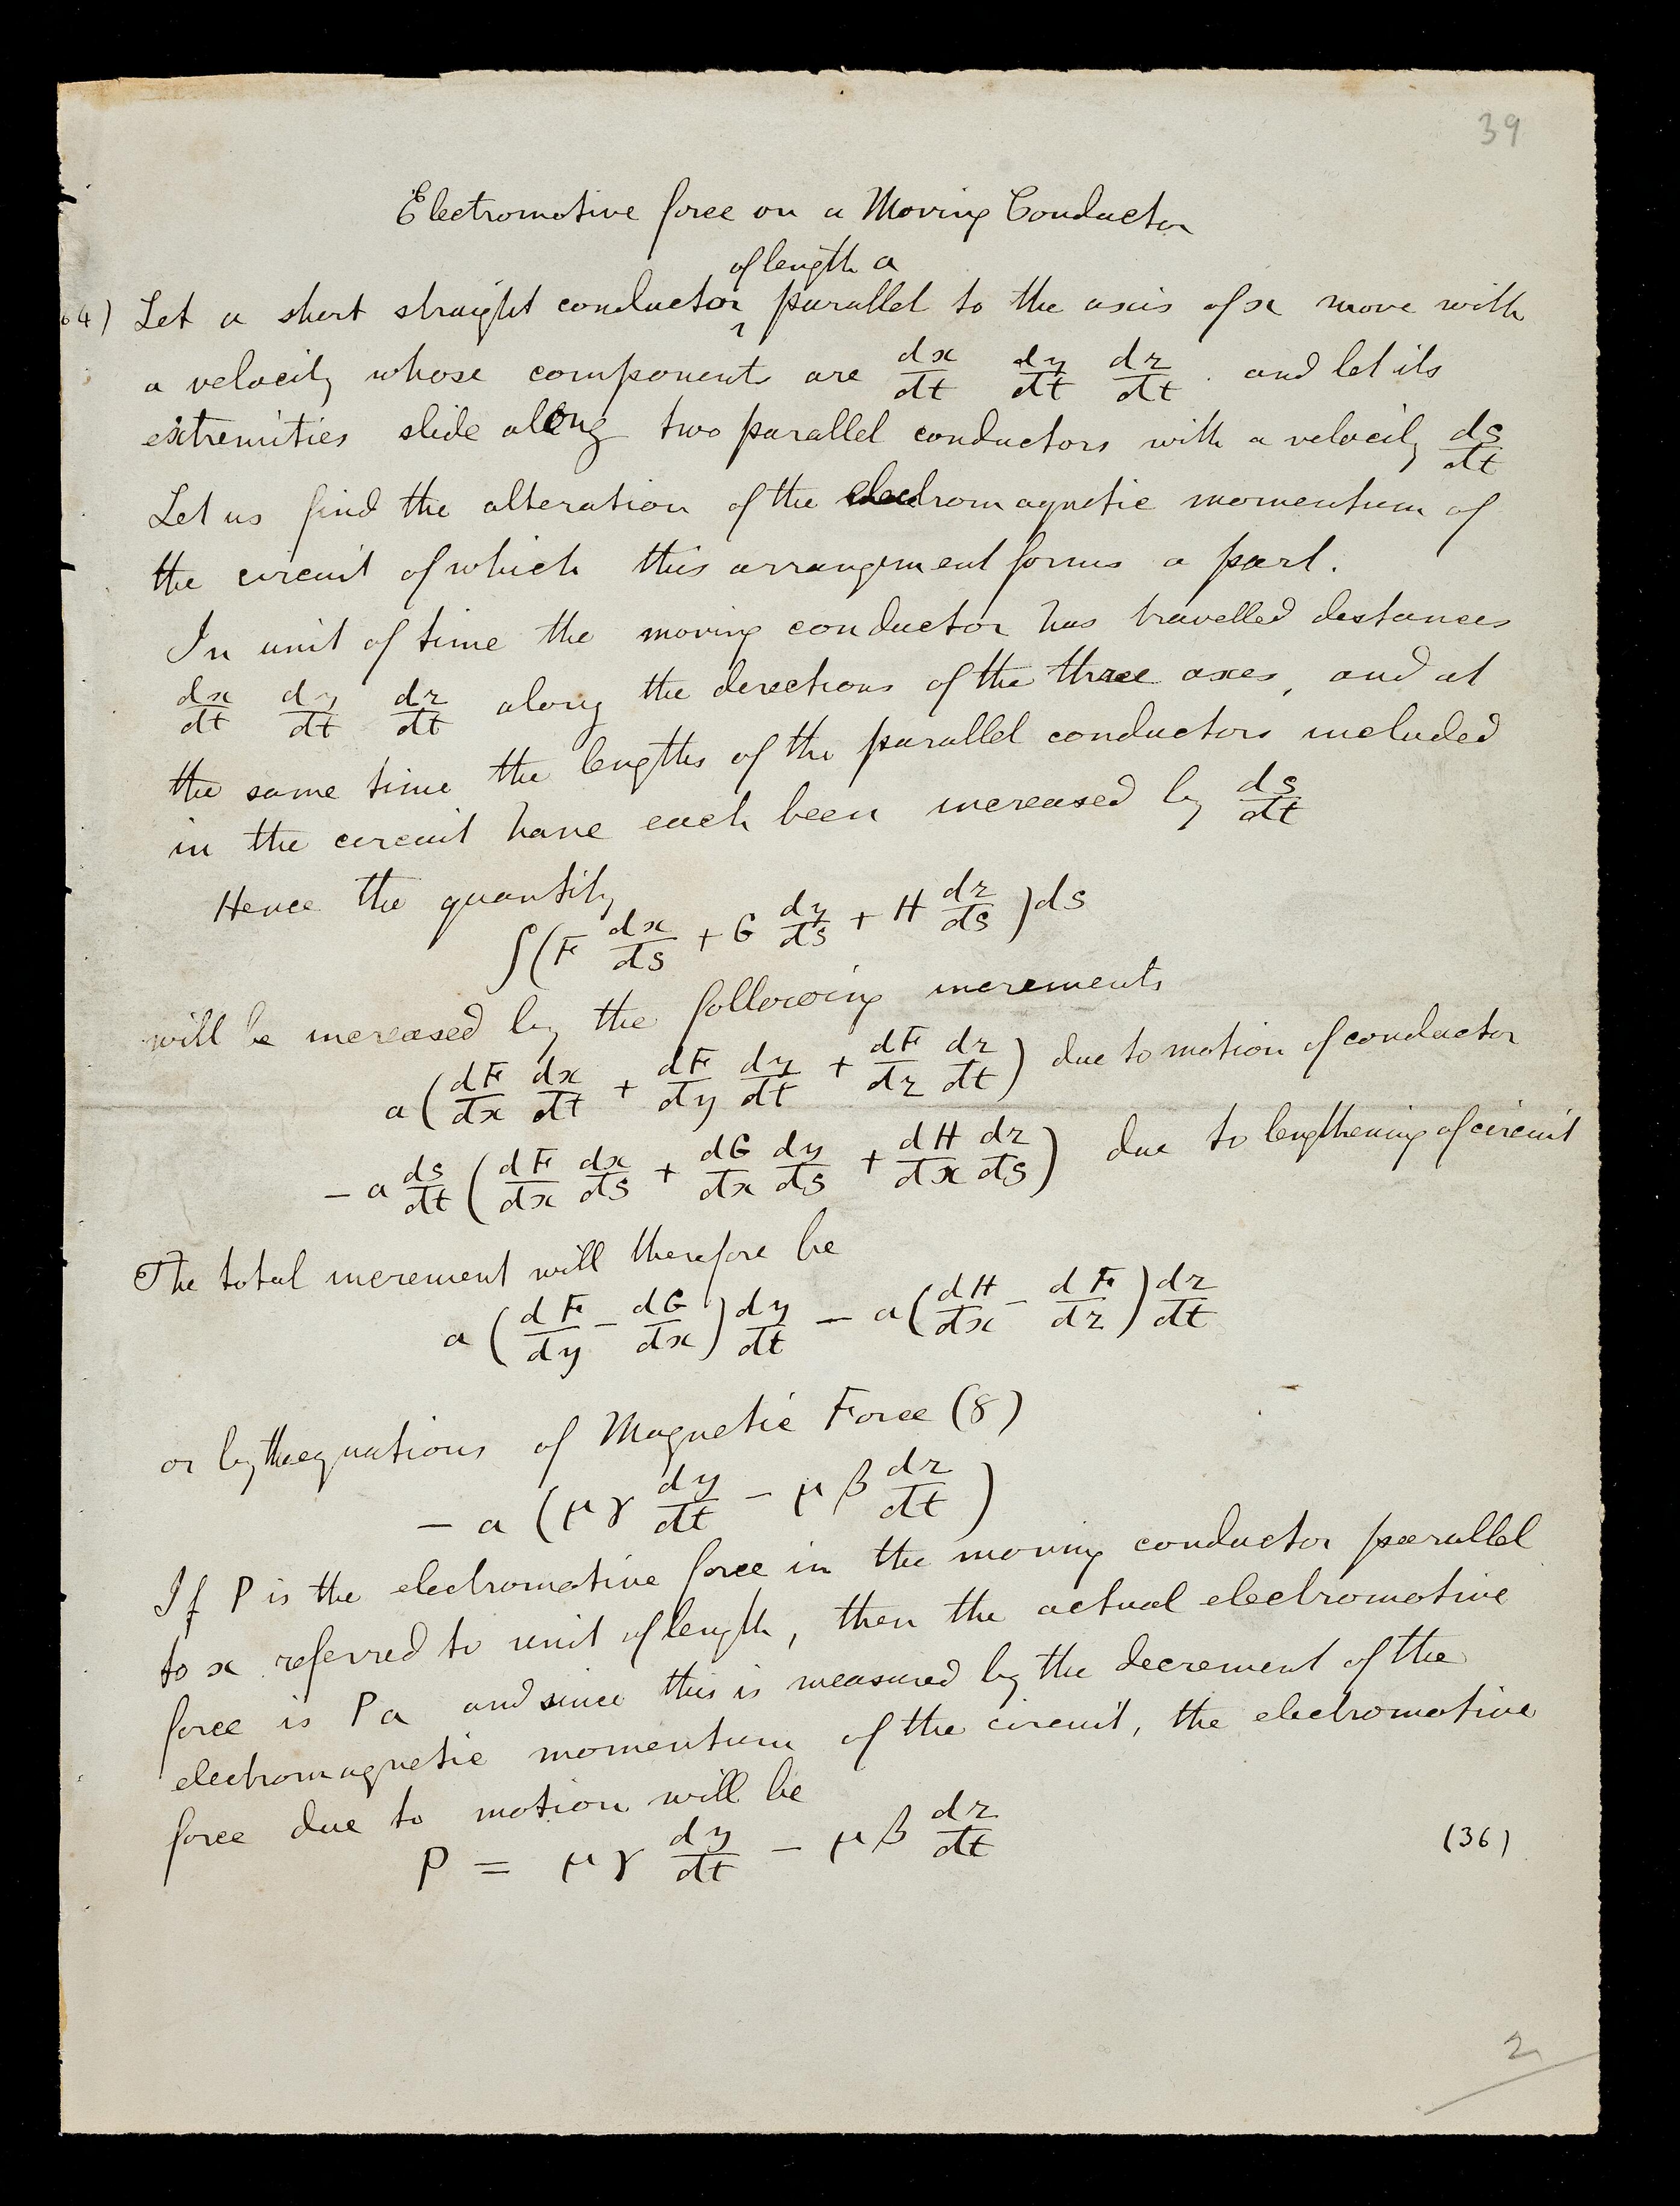 39
Electromotive force on a Moving Conductor
of length a
64) Let a short straight conductor parallel to the axis of x move with
a velocity whose components are dx/dt dy/dt dz/dt . and let its
extremities slide along two parallel conductors with a velocity ds/dt
Let us find the alteration of the electromagnetic momentum of
the circuit of which this arrangement forms a part.
In unit of time the moving conductor has travelled distances
dx/dt dy/dt dz/dt along the directions of the three axes, and at
the same time the lengths of the parallel conductors included
in the circuit have each been increased by ds/dt
Hence the quantity
∫(F dx/ds + G dy/ds + H dz/ds) ds
will be increased by the following increments
a(dF/dx dx/dt + dF/dy dy/dt + dF/dz dz/dt) due to motion of conductor
− a ds/dt (dF/dx dx/ds + dG/dx dy/ds + dH/dx dz/ds) due to lengthening of circuit
The total increment will therefore be
a(dF/dy − dG/dx) dy/dt − a(dH/dx − dF/dz) dz/dt
or by the equations of Magnetic Force (8)
− a (μγ dy/dt − μβ dz/dt)
If P is the electromotive force in the moving conductor parallel
to x referred to unit of length, then the actual electromotive
force is Pa and since this is measured by the decrement of the
electromagnetic momentum of the circuit, the electromotive
force due to motion will be
P = μγ dy/dt − μβ dz/dt (36)
2